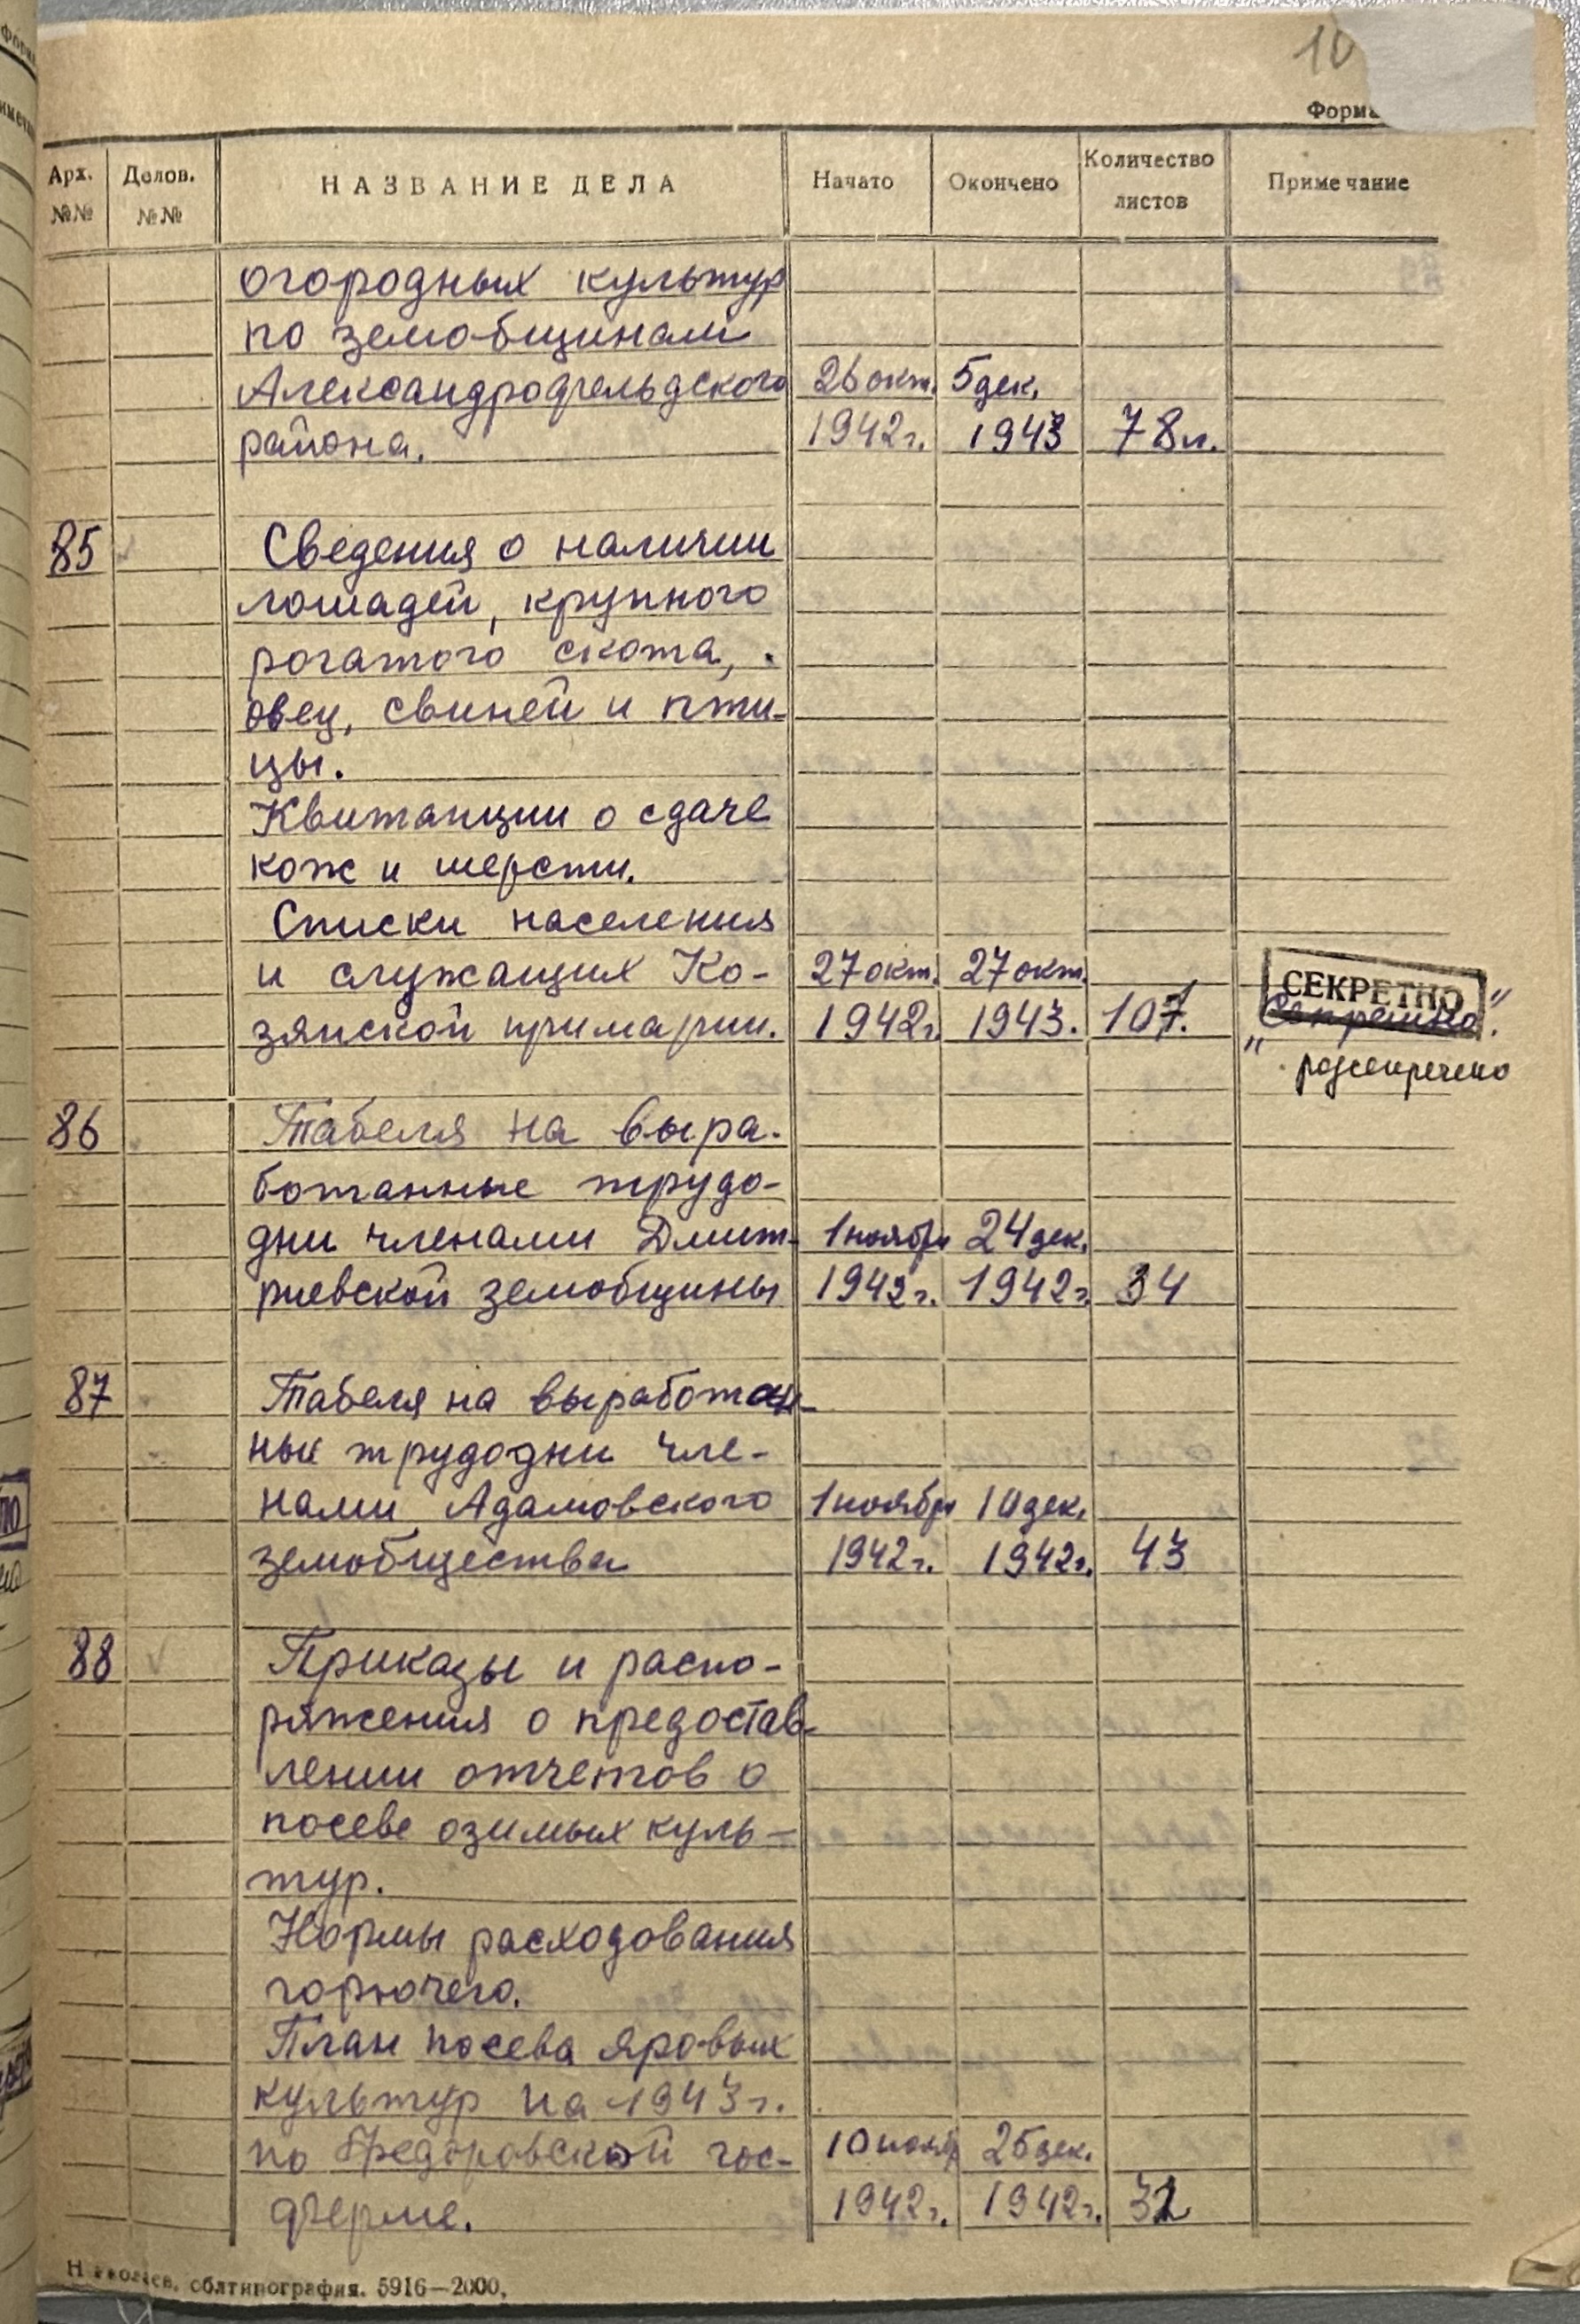 10
Форма
Арх. №№ Делов. №№ НАЗВАНИЕ ДЕЛА Начато Окончено Количество листов Примечание
огородных культур
по земобщинам
Александрофельдского 26 окт. 5 дек.
района. 1942г. 1943 78л.
85 Сведения о наличии
лошадей, крупного
рогатого скота,
овец, свиней и пти-
цы.
Квитанции о сдаче
кож и шерсти.
Списки населения
и служащих Ко- 27 окт. 27 окт. СЕКРЕТНО
зянской примарии. 1942г. 1943. 107. „Секретно".
рассекречено
86 Табеля на выра-
ботанные трудо-
дни членами Дмит- 1 ноября 24 дек.
риевской земобщины 1942г. 1942г. 34
87 Табеля на выработан-
ные трудодни чле-
нами Адамовского 1 ноября 10 дек.
земобщества 1942г. 1942г. 43
88 Приказы и распо-
ряжения о предостав-
лении отчетов о
посеве озимых куль-
тур.
Нормы расходования
горючего.
План посева яровых
культур на 1943г.
по Федоровской гос- 10 нояб 25 дек.
ферме. 1942г. 1942г.
облтипография. 5916—2000.